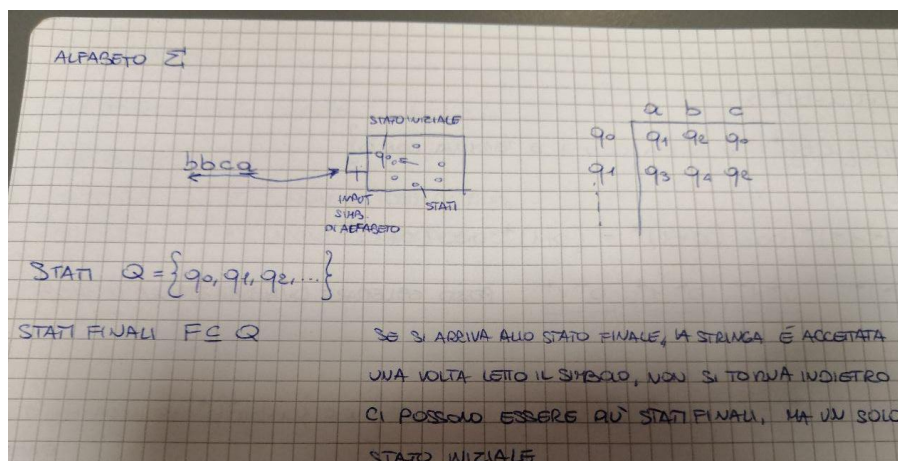 ALFABETO Σ
a b c
STATO INIZIALE
q0 q1 q2 q0
q0
bbca
q1 q3 q4 q2
STATI
INPUT
SIMB.
DI ALFABETO
STATI Q = {q0, q1, q2, ...}
STATI FINALI F ⊆ Q
SE SI ARRIVA ALLO STATO FINALE, LA STRINGA É ACCETTATA
UNA VOLTA LETTO IL SIMBOLO, NON SI TORNA INDIETRO
CI POSSONO ESSERE PIÙ STATI FINALI, MA UN SOLO
STATO INIZIALE